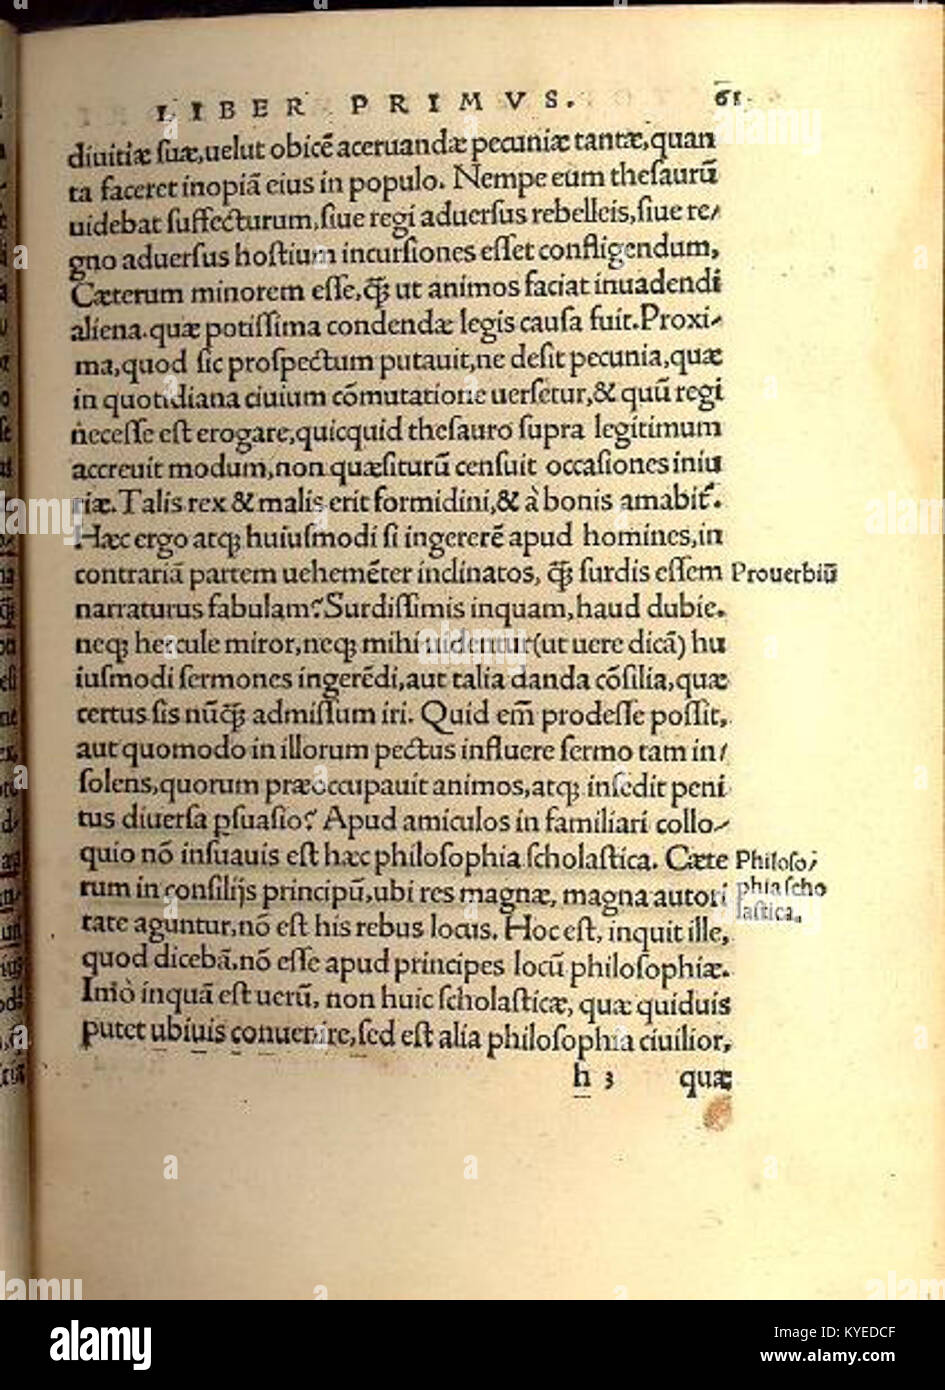 LIBER PRIMVS. 61
diuitiæ suæ, uelut obicē aceruandæ pecuniæ tantæ, quan
ta faceret inopiā eius in populo. Nempe eum thesaurū
uidebat suffecturum, siue regi aduersus rebelleis, siue re/
gno aduersus hostium incursiones esset confligendum,
Cæterum minorem esse, ꝙ̃ ut animos faciat inuadendi
aliena. quæ potissima condendæ legis causa fuit. Proxi/
ma, quod sic prospectum putauit, ne desit pecunia, quæ
in quotidiana ciuium cōmutatione uersetur, & quū regi
necesse est erogare, quicquid thesauro supra legitimum
accreuit modum, non quæsiturū censuit occasiones iniu
riæ. Talis rex & malis erit formidini, & à bonis amabit᷑.
Hæc ergo atqꝫ huiusmodi si ingererē apud homines, in
contrariā partem uehemēter inclinatos, ꝙ̃ surdis essem
Prouerbiū
narraturus fabulam? Surdissimis inquam, haud dubie.
neqꝫ hercule miror, neqꝫ mihi uidentur (ut uere dicā) hu
iusmodi sermones ingerēdi, aut talia danda cōsilia, quæ
certus sis nūꝙ̃ admissum iri. Quid em̄ prodesse possit,
aut quomodo in illorum pectus influere sermo tam in/
solens, quorum præoccupauit animos, atqꝫ insedit peni
tus diuersa ꝑsuasio? Apud amiculos in familiari collo/
quio nō insuauis est hæc philosophia scholastica. Cæte
Philoso/
phia scho
lastica.
rum in consilijs principū, ubi res magnæ, magna autori
tate aguntur, nō est his rebus locus. Hoc est, inquit ille,
quod dicebā, nō esse apud principes locū philosophiæ.
Imò inquā est uerū, non huic scholasticæ, quæ quiduis
putet ubiuis conuenire, sed est alia philosophia ciuilior,
h 3 quæ
alamy
Image ID: KYEDCF
www.alamy.com